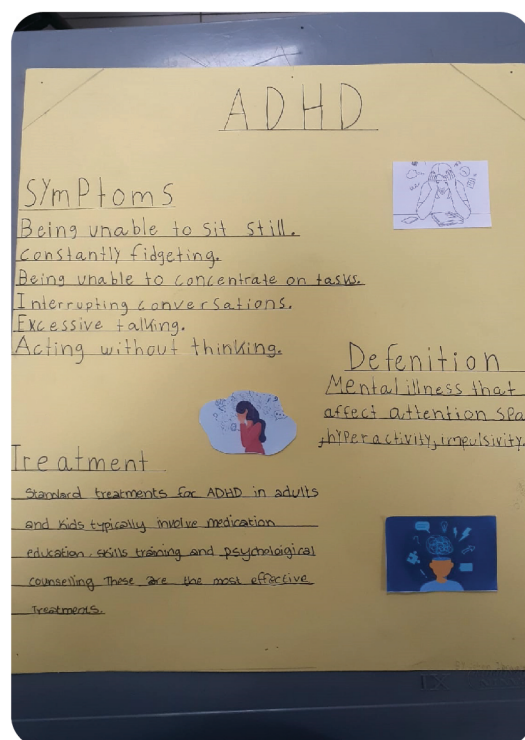 ADHD
Symptoms
Being unable to sit still.
constantly fidgeting.
Being unable to concentrate on tasks.
Interrupting conversations.
Excessive talking.
Acting without thinking.
Defenition
Mental illness that
affect attention spa
,hyperactivity,impulsivity.
Treatment
Standard treatments for ADHD in adults
and kids typically involve medication
education, skills training and psychological
counselling These are the most effective
Treatments.